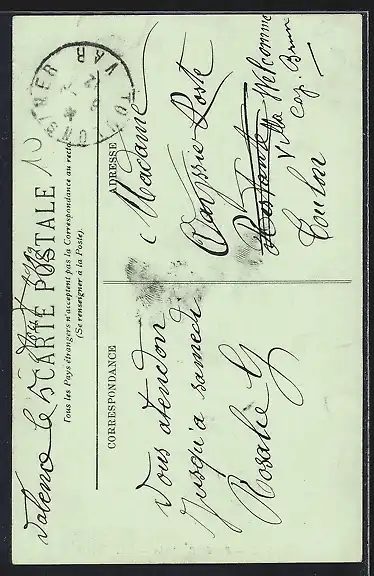 Valence le 5
CARTE POSTALE
Tous les Pays étrangers n'acceptent pas la Correspondance au recto
(Se renseigner à la Poste).
CORRESPONDANCE
Vous atendon
jusqu'a samedi
Rosalie G
ADRESSE
Madame
Poste
Restante
Villa Welcomme
Cap. Brun
Toulon
VAR